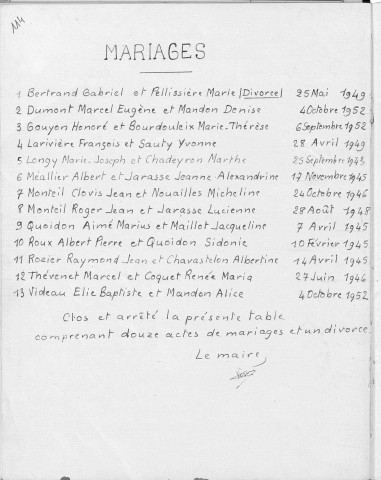 114
MARIAGES
1 Bertrand Gabriel et Pellissière Marie (Divorce) 25 Mai 1949
2 Dumont Marcel Eugène et Mandon Denise 4 Octobre 1952
3 Gouyon Honoré et Bourdouleix Marie-Thérèse 6 Septembre 1952
4 Larivière François et Sauty Yvonne 28 Avril 1949
5 Longy Marie-Joseph et Chadeyron Marthe 25 Septembre 1943
6 Méallier Albert et Jarasse Jeanne Alexandrine 17 Novembre 1945
7 Monteil Clovis Jean et Nouailles Micheline 24 Octobre 1946
8 Monteil Roger Jean et Jarasse Lucienne 28 Août 1948
9 Quoidon Aimé Marius et Maillot Jacqueline 7 Avril 1945
10 Roux Albert Pierre et Quoidon Sidonie 10 Février 1945
11 Rozier Raymond Jean et Chavastelon Albertine 14 Avril 1945
12 Thévenet Marcel et Coquet Renée Maria 27 Juin 1946
13 Videau Elie Baptiste et Mandon Alice 4 Octobre 1952
Clos et arrêté la présente table
comprenant douze actes de mariages et un divorce
Le maire,